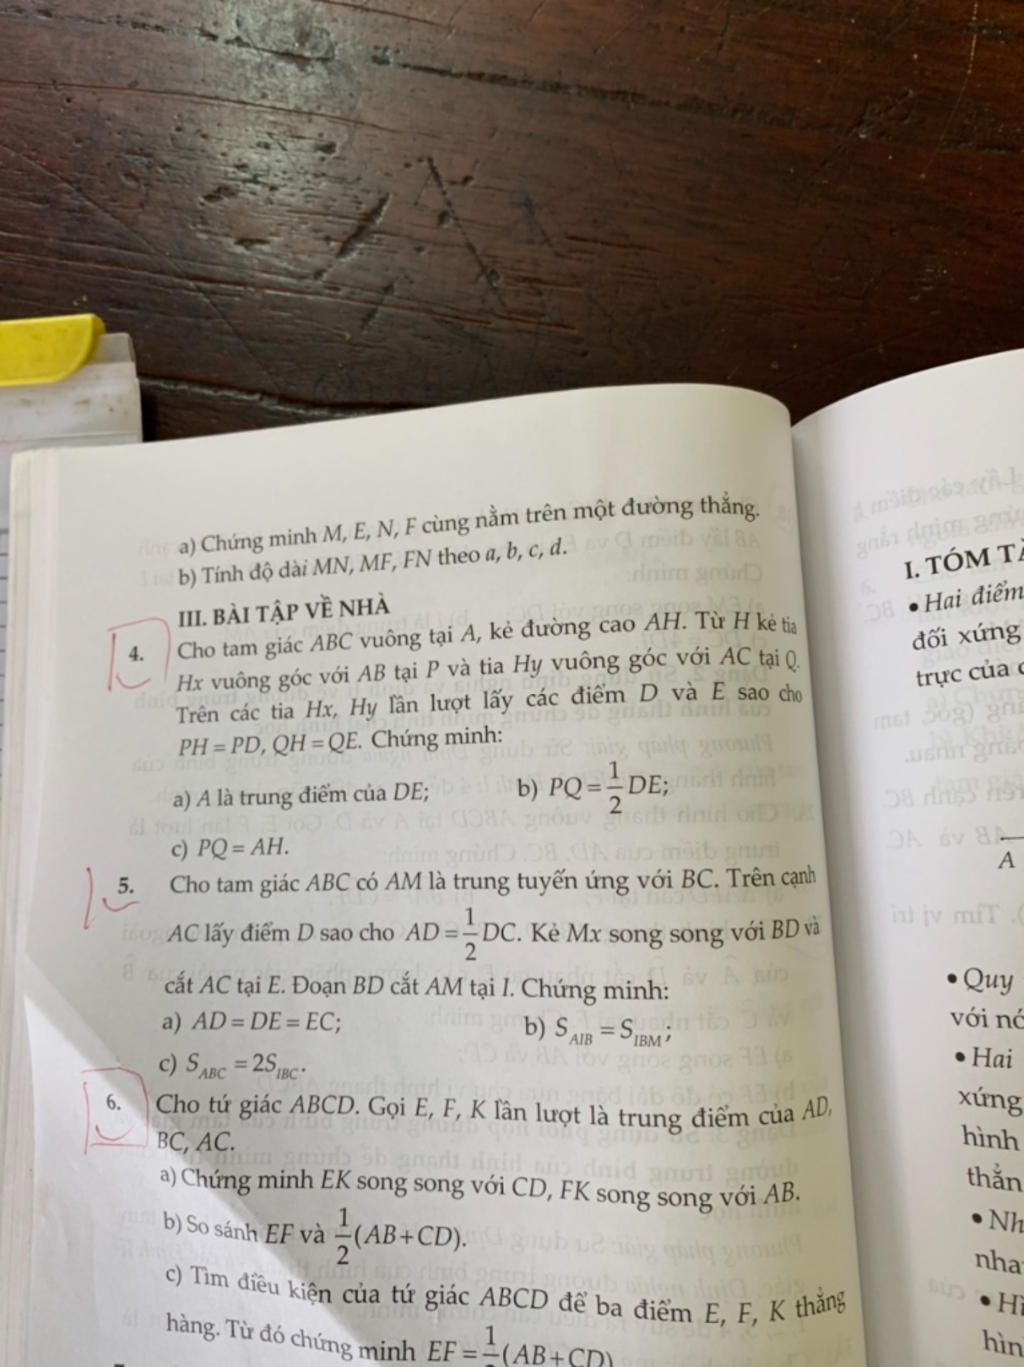 a) Chứng minh M, E, N, F cùng nằm trên một đường thẳng.
b) Tính độ dài MN, MF, FN theo a, b, c, d.
III. BÀI TẬP VỀ NHÀ
4. Cho tam giác ABC vuông tại A, kẻ đường cao AH. Từ H kẻ tia
Hx vuông góc với AB tại P và tia Hy vuông góc với AC tại Q.
Trên các tia Hx, Hy lần lượt lấy các điểm D và E sao cho
PH = PD, QH = QE. Chứng minh:
a) A là trung điểm của DE; b) PQ = 1/2 DE;
c) PQ = AH.
5. Cho tam giác ABC có AM là trung tuyến ứng với BC. Trên cạnh
AC lấy điểm D sao cho AD = 1/2 DC. Kẻ Mx song song với BD và
cắt AC tại E. Đoạn BD cắt AM tại I. Chứng minh:
a) AD = DE = EC; b) S_AIB = S_IBM;
c) S_ABC = 2S_IBC.
6. Cho tứ giác ABCD. Gọi E, F, K lần lượt là trung điểm của AD,
BC, AC.
a) Chứng minh EK song song với CD, FK song song với AB.
b) So sánh EF và 1/2 (AB+CD).
c) Tìm điều kiện của tứ giác ABCD để ba điểm E, F, K thẳng
hàng. Từ đó chứng minh EF = 1/2 (AB+CD)
I. TÓM TẮ
• Hai điểm
đối xứng
trực của
A
• Quy
với nó
• Hai
xứng
hình
thẳn
• Nh
nha
• Hì
hìn